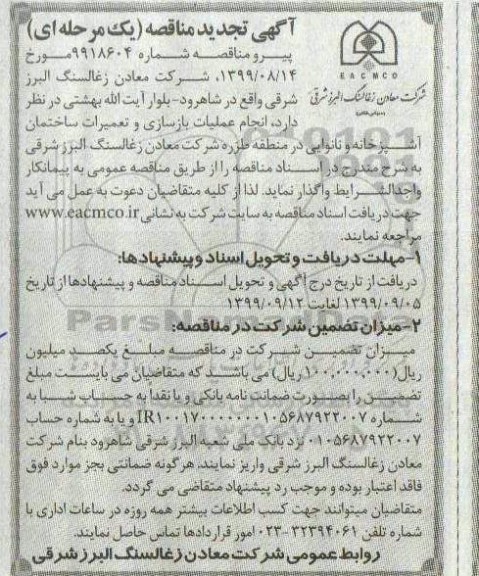 آگهی تجدید مناقصه (یک مرحله ای)
پیرو مناقصه شماره ۹۹۱۸۶۰۴ مورخ
۱۳۹۹/۰۸/۱۴، شرکت معادن زغالسنگ البرز
شرقی واقع در شاهرود-بلوار آیت الله بهشتی در نظر
دارد، انجام عملیات بازسازی و تعمیرات ساختمان
EACMCO
شرکت معادن زغالسنگ البرز شرقی
آشپزخانه و نانوایی در منطقه طزره شرکت معادن زغالسنگ البرز شرقی
به شرح مندرج در اسناد مناقصه را از طریق مناقصه عمومی به پیمانکار
واجدالشرایط واگذار نماید. لذا از کلیه متقاضیان دعوت به عمل می آید
جهت دریافت اسناد مناقصه به سایت شرکت به نشانی www.eacmco.ir
مراجعه نمایند.
۱-مهلت دریافت و تحویل اسناد و پیشنهادها:
دریافت از تاریخ درج آگهی و تحویل اسناد مناقصه و پیشنهادها از تاریخ
۱۳۹۹/۰۹/۰۵ لغایت ۱۳۹۹/۰۹/۱۲
ParsNamadData
۲-میزان تضمین شرکت در مناقصه:
میزان تضمین شرکت در مناقصه مبلغ یکصد میلیون
ریال (۱۰۰,۰۰۰,۰۰۰ ریال) می باشد که متقاضیان می بایست مبلغ
تضمین را بصورت ضمانت نامه بانکی و یا نقدا به حساب شبا به
شماره IR۱۰۰۱۷۰۰۰۰۰۰۰۱۰۵۶۸۷۹۲۲۰۰۷ و یا به شماره حساب
۰۱۰۵۶۸۷۹۲۲۰۰۷ نزد بانک ملی شعبه البرز شرقی شاهرود بنام شرکت
معادن زغالسنگ البرز شرقی واریز نمایند. هرگونه ضمانتی بجز موارد فوق
فاقد اعتبار بوده و موجب رد پیشنهاد متقاضی می گردد.
متقاضیان میتوانند جهت کسب اطلاعات بیشتر همه روزه در ساعات اداری با
شماره تلفن ۳۲۳۹۴۰۶۱-۰۲۳ امور قراردادها تماس حاصل نمایند.
روابط عمومی شرکت معادن زغالسنگ البرز شرقی